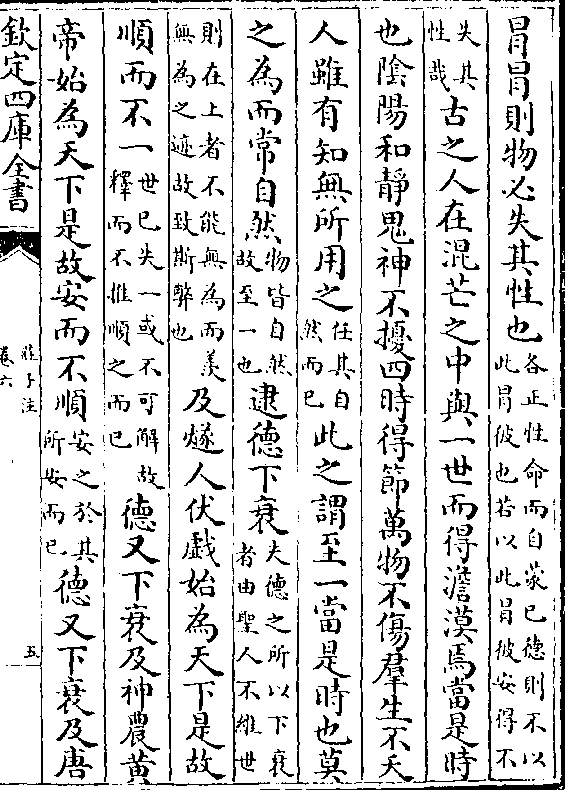 冐冐則物必失其性也各正性命而自蒙已德則不以此冐彼也若以此冐彼安得不
失其性哉古之人在混芒之中與一世而得澹漠焉當是時
也陰陽和靜鬼神不擾四時得節萬物不傷羣生不夭
人雖有知無所用之任其自然而已此之謂至一當是時也莫
之為而常自然物皆自然故至一也逮德下衰夫德之所以下衰者由聖人不繼世
則在上者不能無為而羨無為之迹故致斯弊也及燧人伏戲始為天下是故
順而不一世已失一或不可解故釋而不推順之而已德又下衰及神農黄
帝始為天下是故安而不順安之於其所安而已德又下衰及唐
欽定四庫全書
莊子注
卷六
五